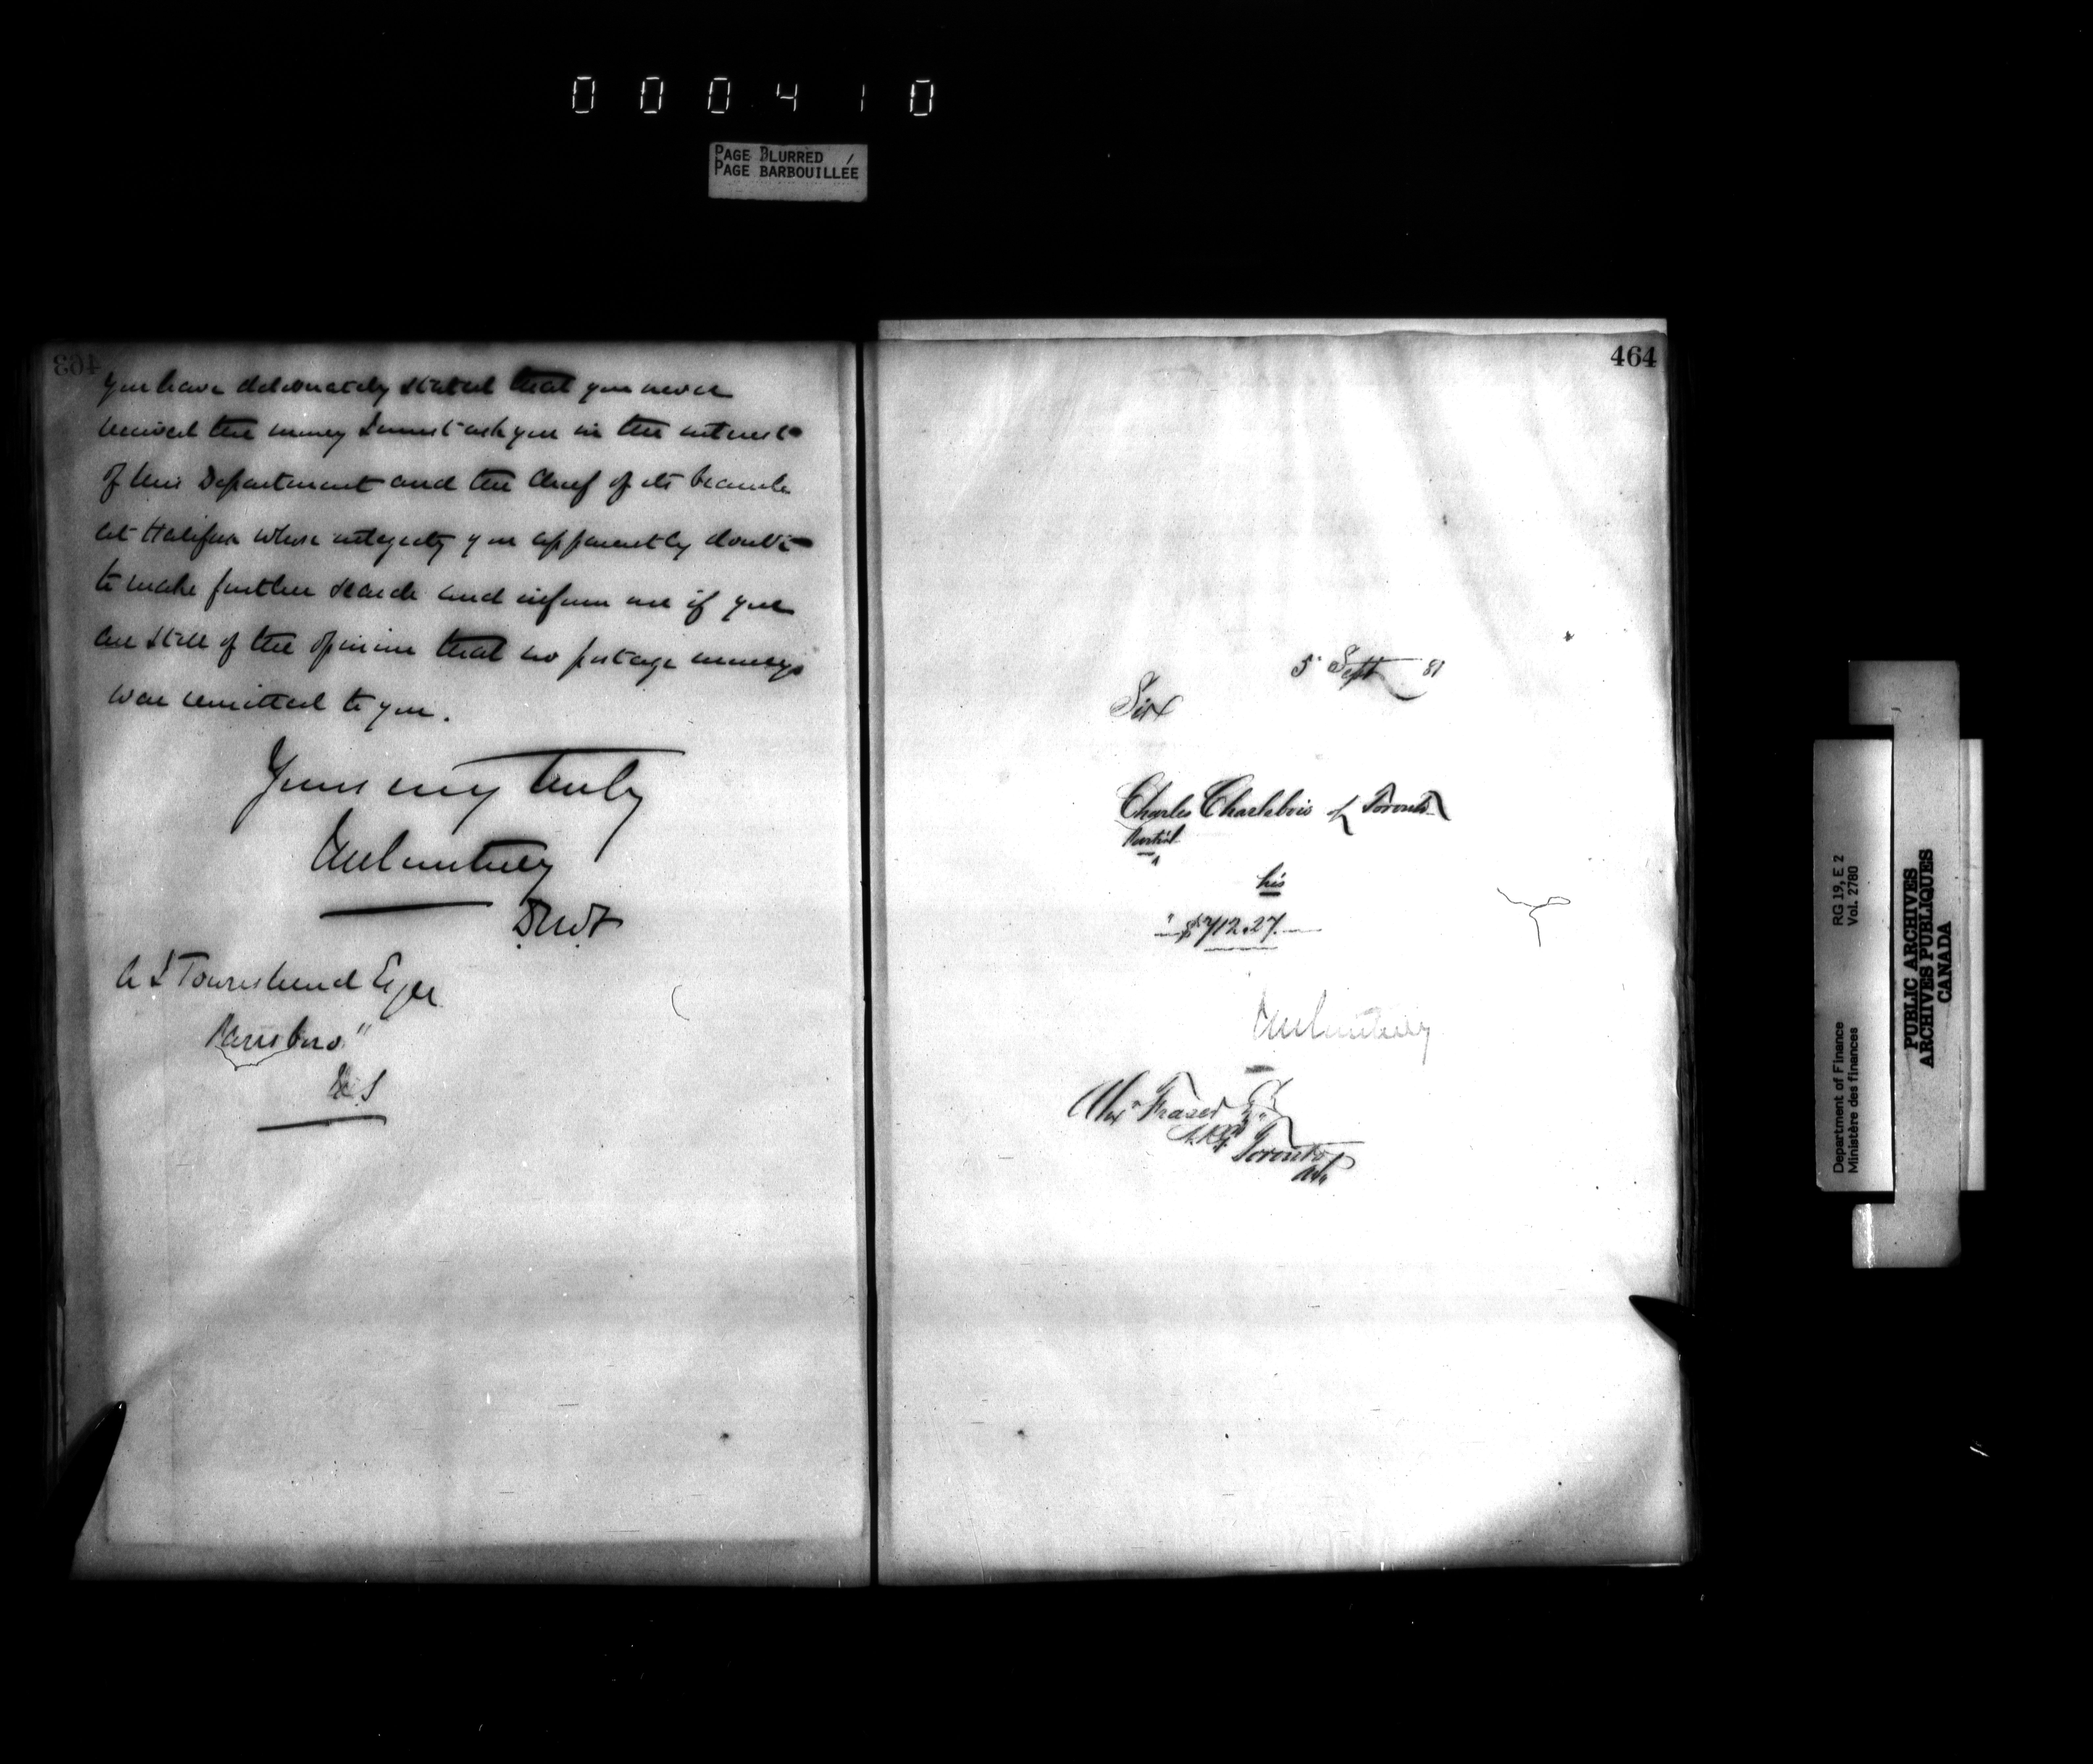 000410
PAGE BLURRED
PAGE BARBOUILLÉE
463
you have deliberately stated that you never
received the money I must ask you in the interest
of this Department and the Chief of its branch
at Halifax whose integrity you apparently doubt
to make further search and inform me if you
are still of the opinion that no postage money
was remitted to you.
Yours very truly
JMCourtney
DMF
A S Townshend Esqre
Parrsboro"
N.S
464
5 Sept 81
Sir
Charles Charlebois of Toronto
Partial
his
"$712.27.
JMCourtney
Alexr Fraser Esq
Toronto
Department of Finance RG 19, E 2
Ministère des finances Vol. 2780
PUBLIC ARCHIVES
ARCHIVES PUBLIQUES
CANADA